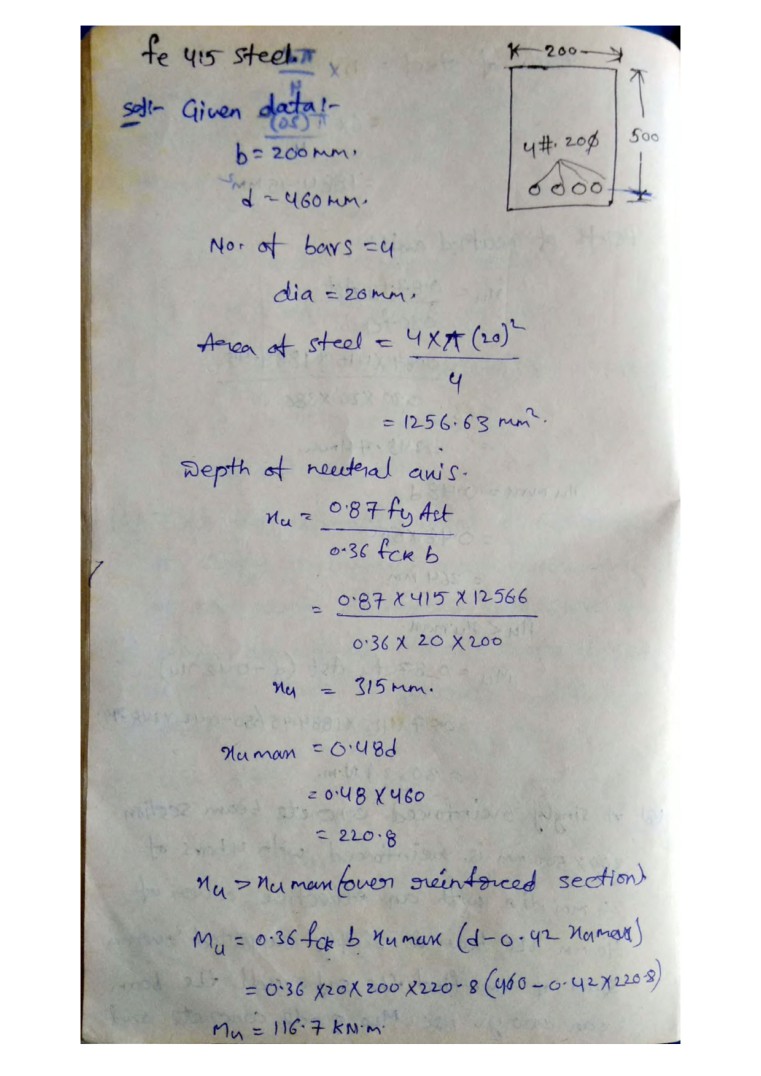 fe 415 steel.
Sol:- Given data:-
b = 200 mm.
d = 460 mm.
No. of bars = 4
dia = 20 mm.
Area of steel = 4 × π (20)² / 4
= 1256.63 mm².
Depth of neutral axis.
xu = 0.87 fy Ast / 0.36 fck b
= 0.87 × 415 × 12566 / 0.36 × 20 × 200
xu = 315 mm.
xu max = 0.48d
= 0.48 × 460
= 220.8
xu > xu max (over reinforced section)
Mu = 0.36 fck b xu max (d - 0.42 xu max)
= 0.36 × 20 × 200 × 220.8 (460 - 0.42 × 220.8)
Mu = 116.7 KN.m.
200
500
4#. 20ϕ